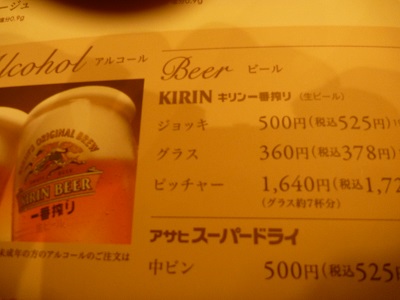 ージュ
Alcohol アルコール
Beer ビール
KIRIN キリン一番搾り (生ビール)
ジョッキ 500円(税込525円)
グラス 360円(税込378円)
ピッチャー 1,640円(税込1,72
(グラス約7杯分)
ORIGINAL BREW
KIRIN BEER
一番搾り
成年の方のアルコールのご注文は
アサヒスーパードライ
中ビン 500円(税込525円